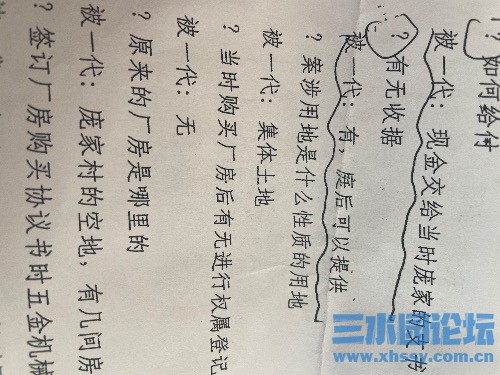 ？如何给付
被一代：现金交给当时庞家的支书
？有无收据
被一代：有，庭后可以提供
？案涉用地是什么性质的用地
被一代：集体土地
？当时购买厂房后有无进行权属登记
被一代：无
？原来的厂房是哪里的
被一代：庞家村的空地，有几间房
？签订厂房购买协议书时五金机械
三水圈论坛
www.xhssy.com.cn